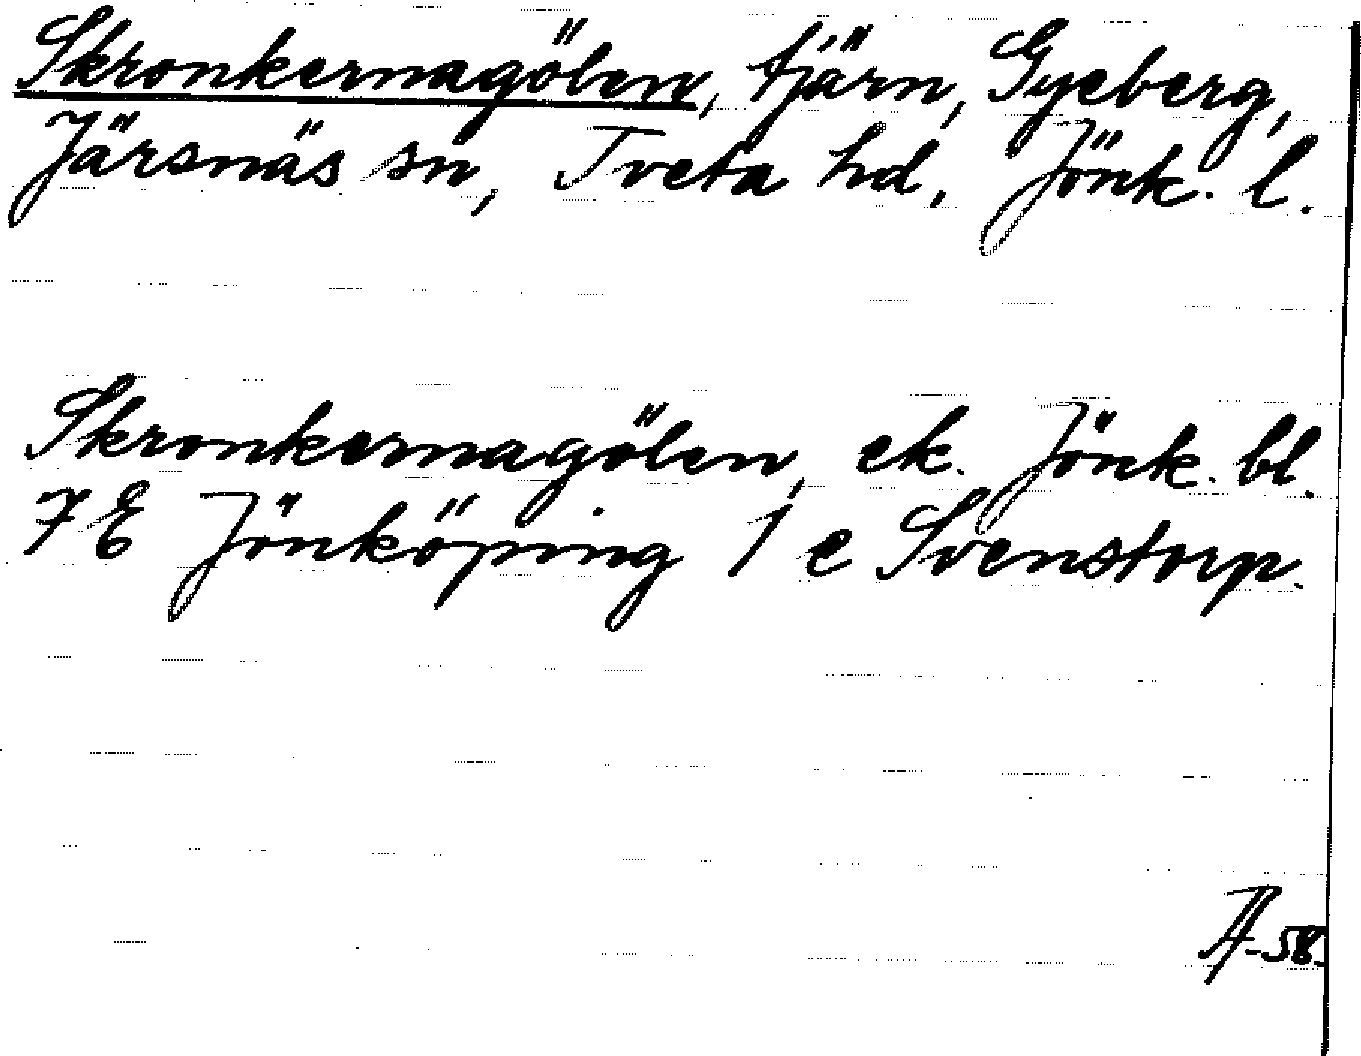 Skronkernagölen, tjärn, Gyeberg,
Järsnäs sn, Tveta hd, Jönk. l.
Skronkernagölen, ek. Jönk. bl.
7 E Jönköping 1 e Svenstorp.